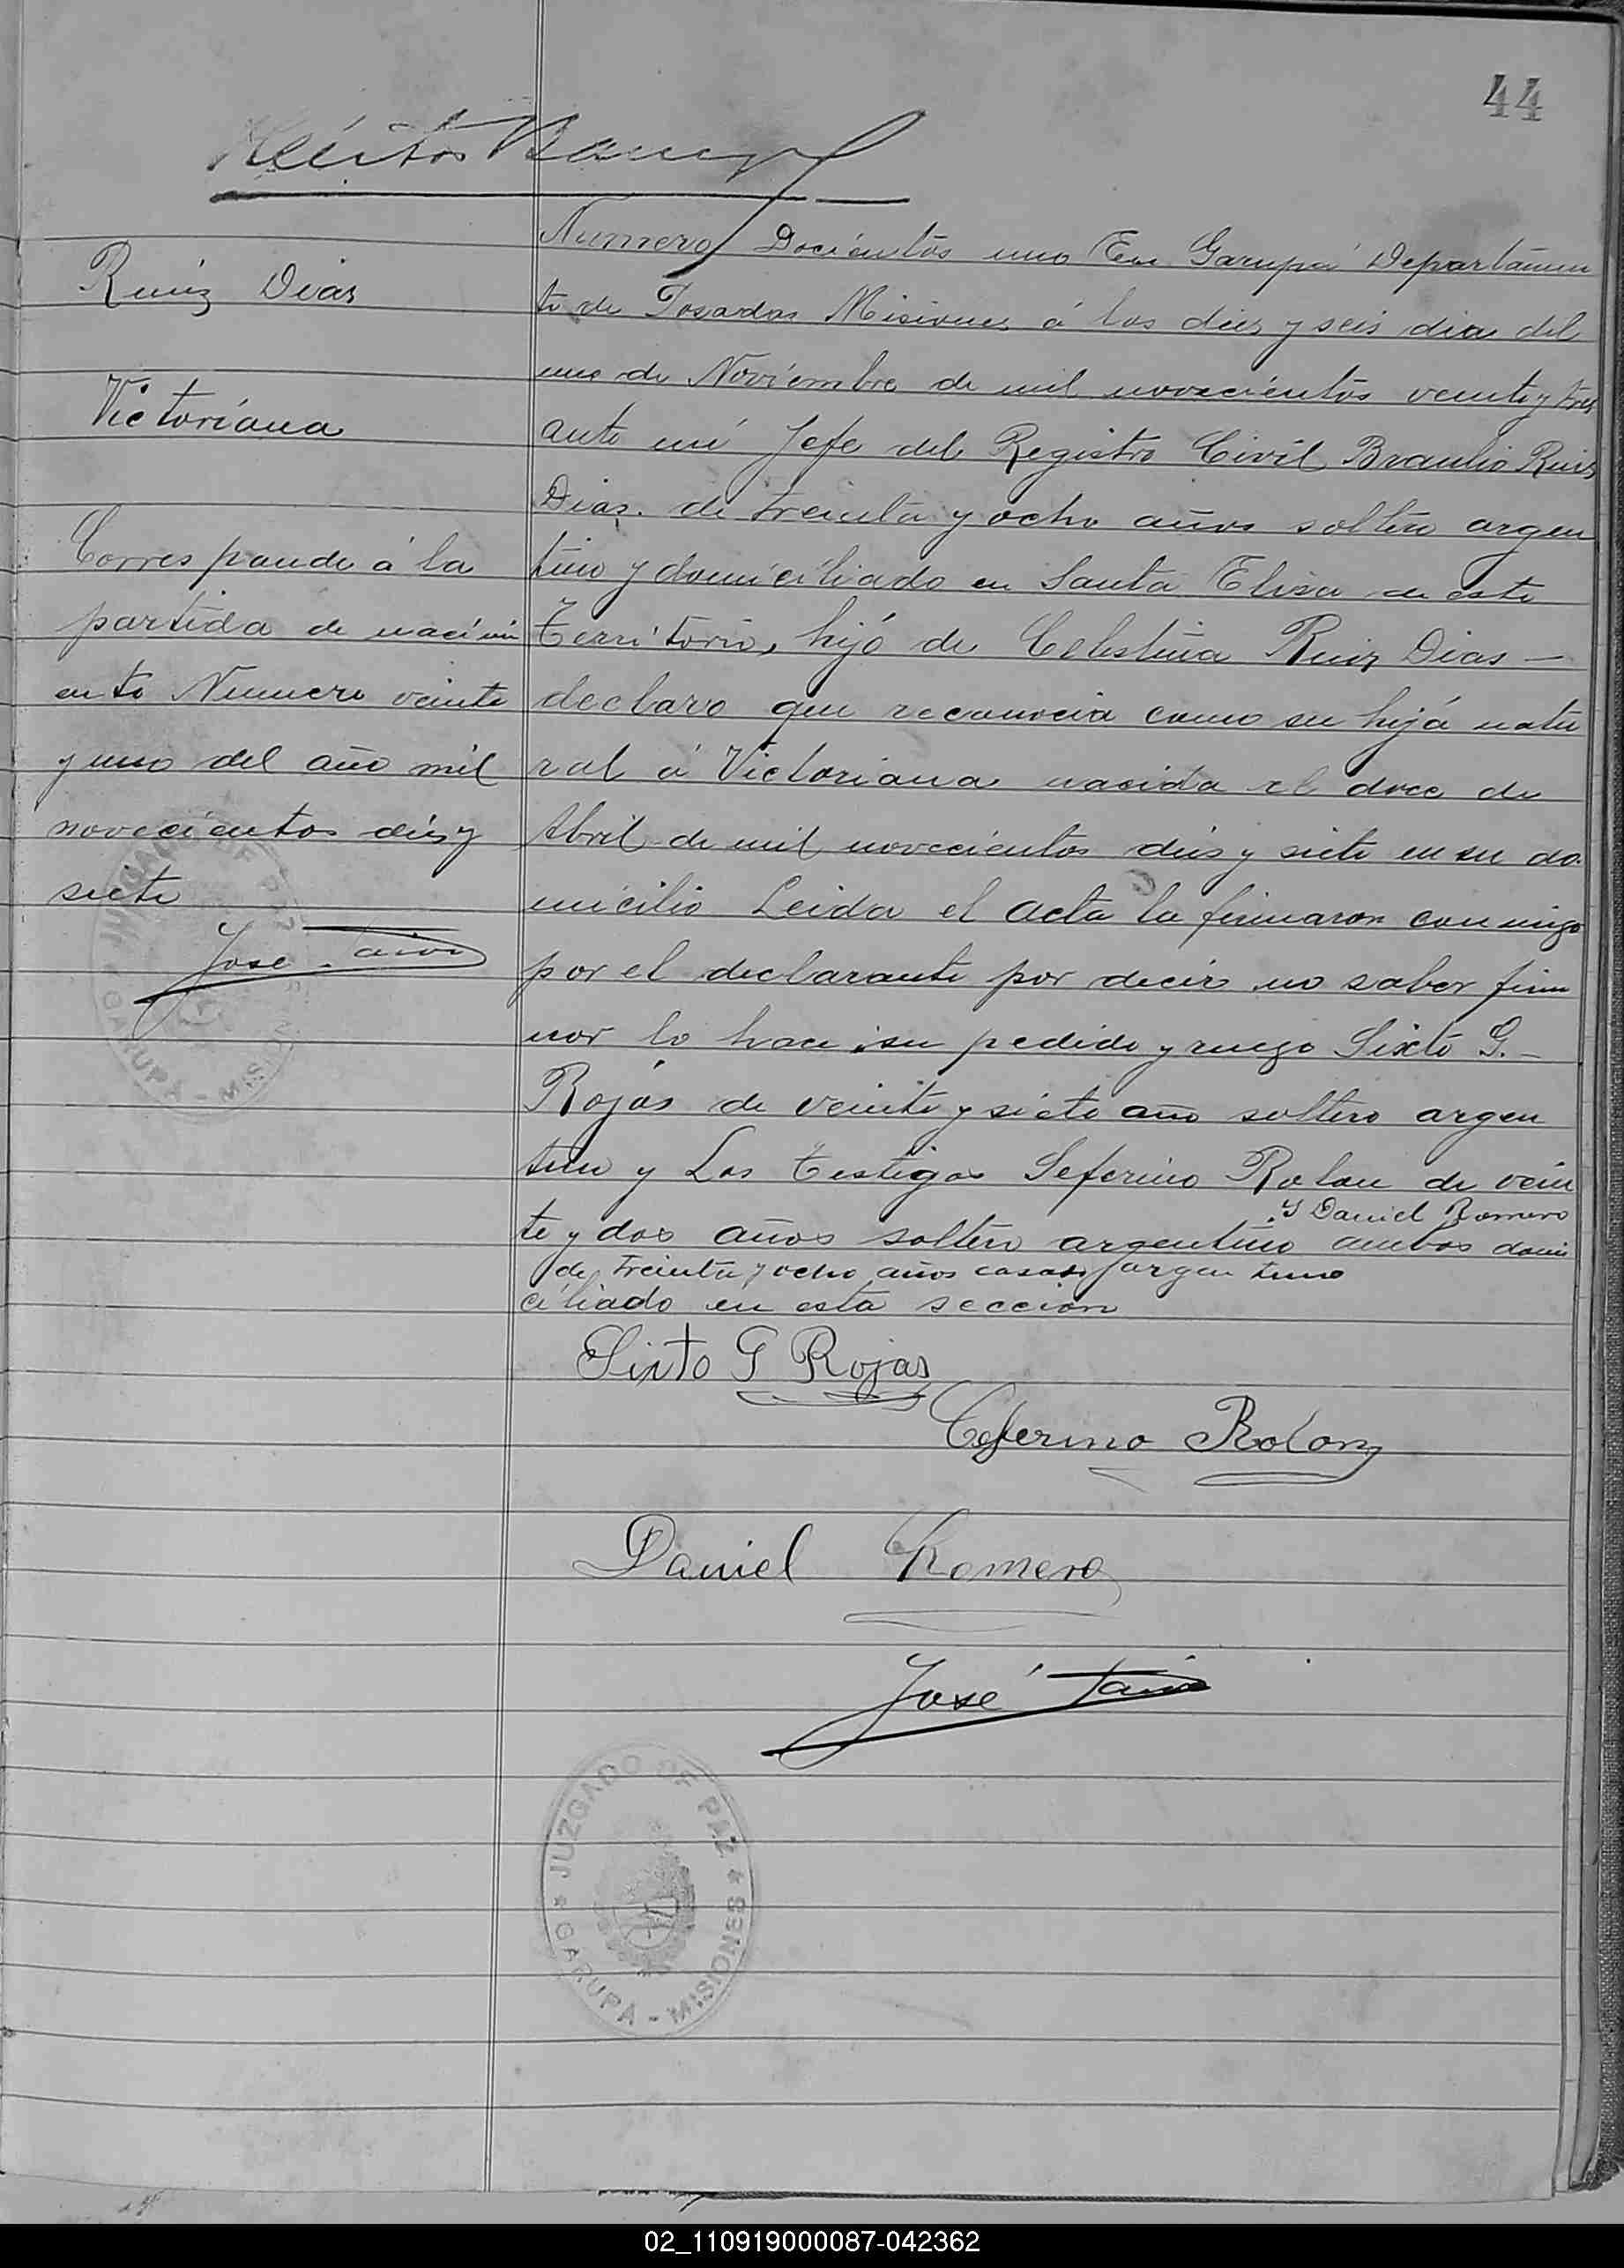 44
Ruiz Dias
Victoriana
Corresponde á la
partida de nacimi
ento Numero veinte
y uno del año mil
novecientos diesy
siete
José
JUZGADO DE PAZ
GARUPA - MISIONES
Numero Docientos uno En Garupá Departamen
to de Posadas Misiones á los dies y seis dia del
mes de Noviembre de mil novecientos veinte y tres
ante mi Jefe del Registro Civil Braulio Ruis
Dias. de treinta y ocho años soltero argen
tino y domiciliado en Santa Elisa de este
Territorio, hijó de Celestina Ruiz Dias —
declaro que reconocia como su hijá natu
ral á Victoriana nacida el doce de
Abril de mil novecientos dies y siete en su do
micilio Leida el acta la firmaron conmigo
por el declarante por decir no saber firm
nor lo hace su pedido y ruego Sixto G. —
Rojás de veinte y siete año soltero argen
tino y Los testigos Seferino Rolon de vein
y Daniel Romero
te y dos años soltero argentino ambos domi
de treinta y ocho años casado argentino
ciliado en esta seccion
Sixto G Rojas
Ceferino Rolon
Daniel Romero
José
JUZGADO DE PAZ
GARUPA - MISIONES
02_110919000087-042362